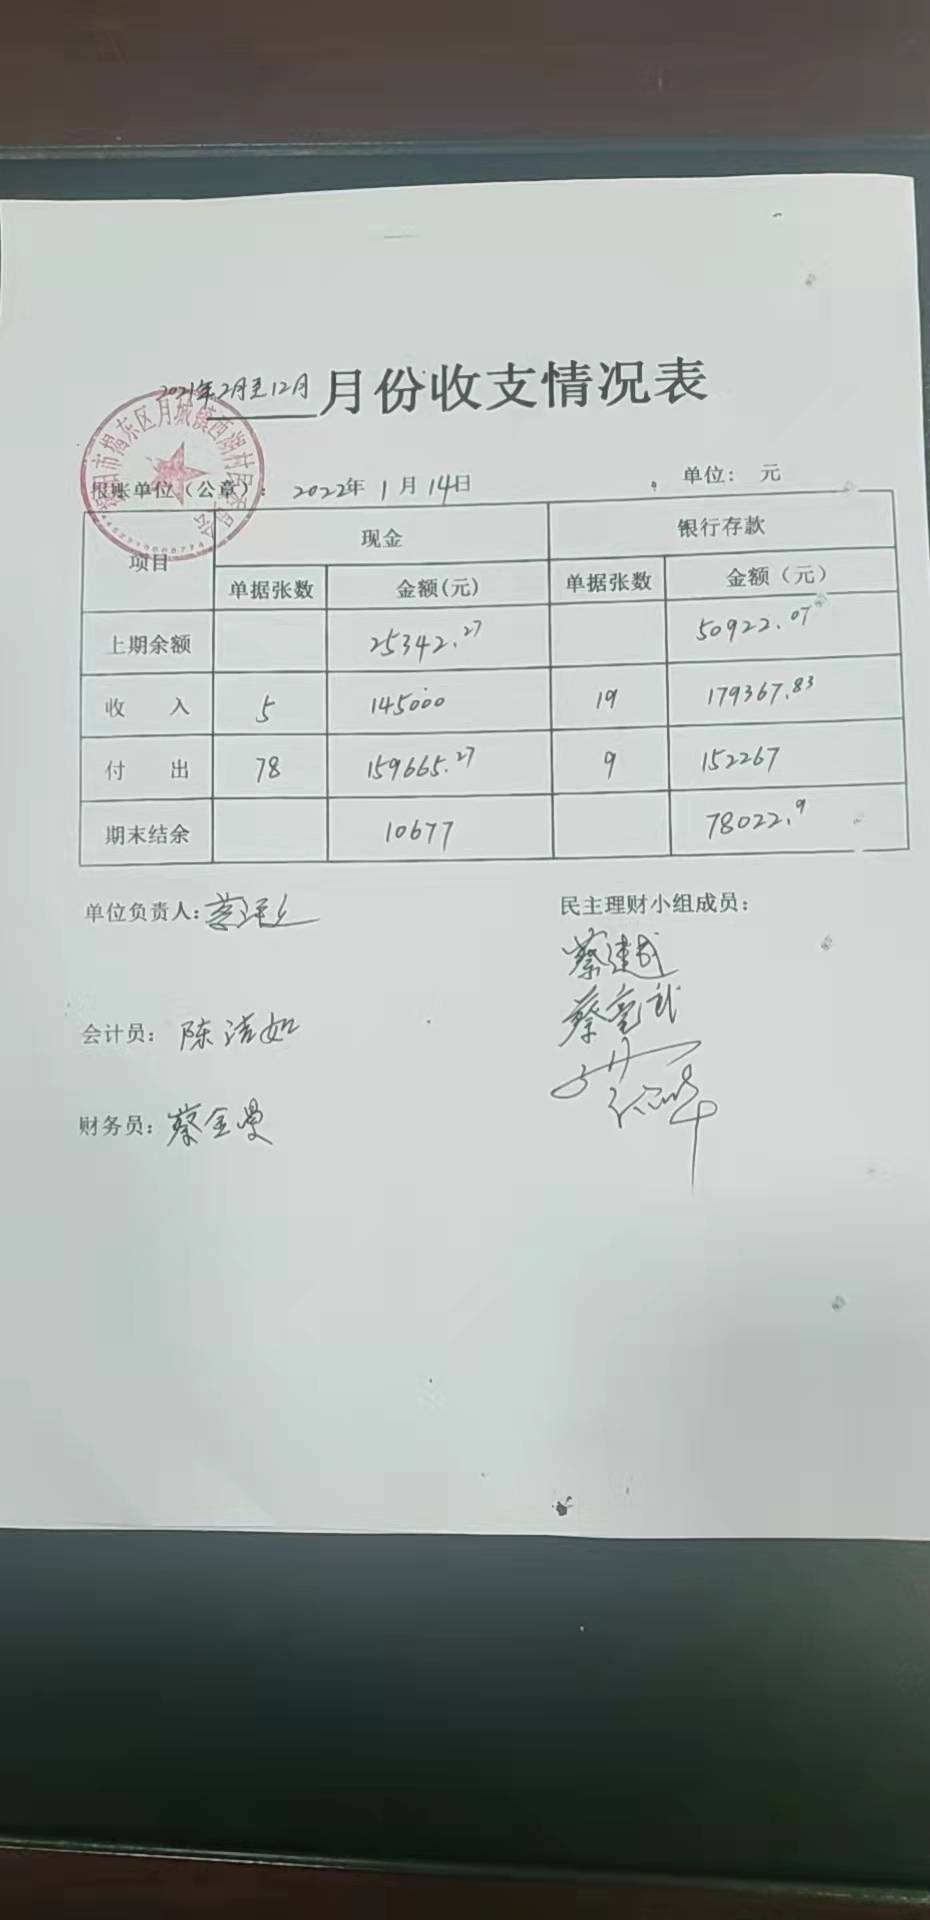 2021年2月至12月 月份收支情况表
揭阳市揭东区月城镇西湖村民委员会
报账单位（公章）： 2022年 1 月 14日 单位： 元
项目 现金 银行存款
单据张数 金额(元) 单据张数 金额（元）
上期余额 25342.27 50922.07
收 入 5 145000 19 179367.83
付 出 78 159665.27 9 152267
期末结余 10677 78022.9
单位负责人: 民主理财小组成员：
蔡建武
会计员： 陈洁如 蔡亮武
财务员： 蔡全曼